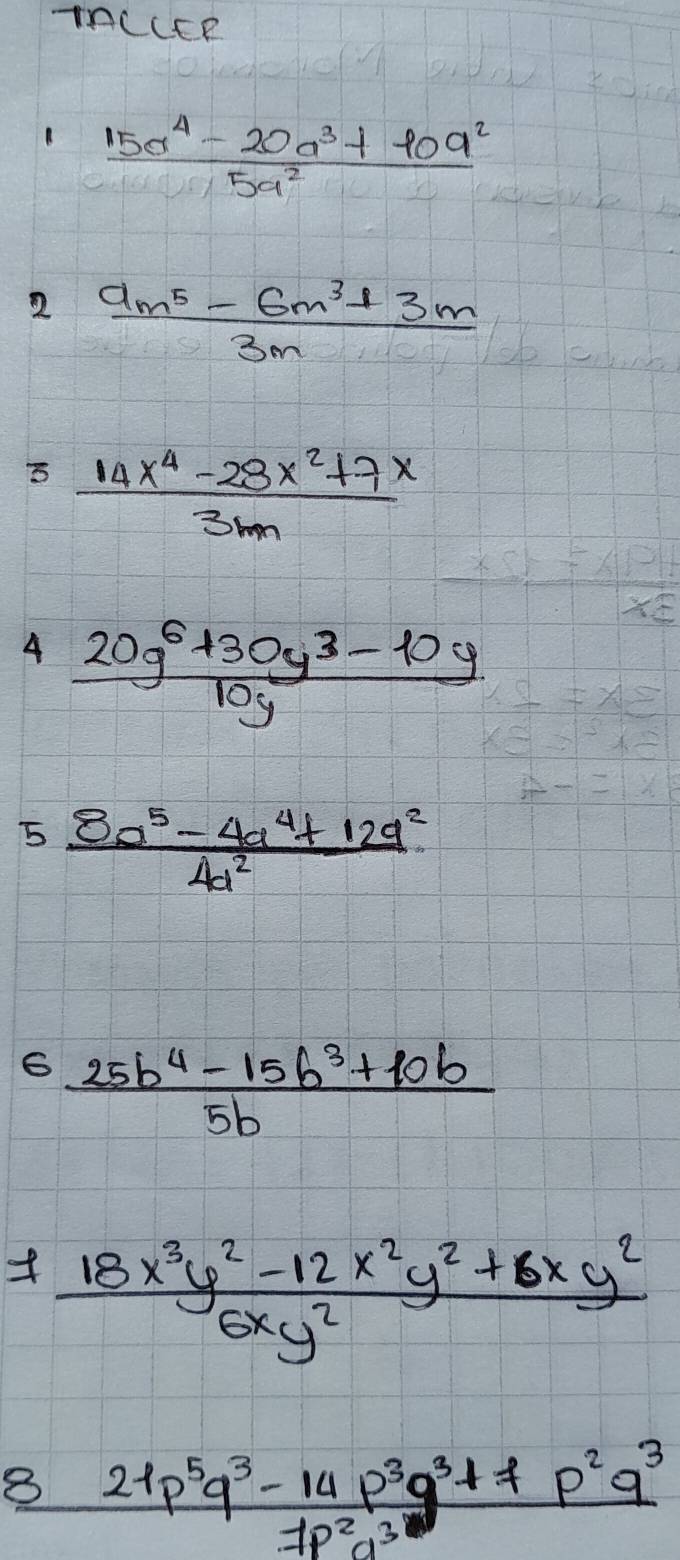 TALLER
1 15a⁴ - 20a³ + 10a²
5a²
2 9m⁵ - 6m³ + 3m
3m
3 14x⁴ - 28x² + 7x
3m
4 20y⁶ + 30y³ - 10y
10y
5 8a⁵ - 4a⁴ + 12a²
4a²
6 25b⁴ - 15b³ + 10b
5b
7 18x³y² - 12x²y² + 6xy²
6xy²
8 21p⁵q³ - 14p³q³ + 7p²q³
7p²q³